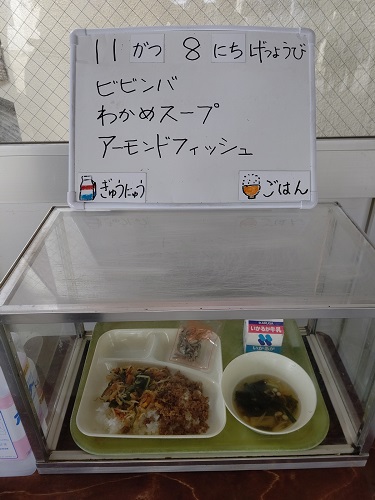 11 がつ 8 にち げつようび
ビビンバ
わかめスープ
アーモンドフィッシュ
ぎゅうにゅう ごはん
いかるが牛乳